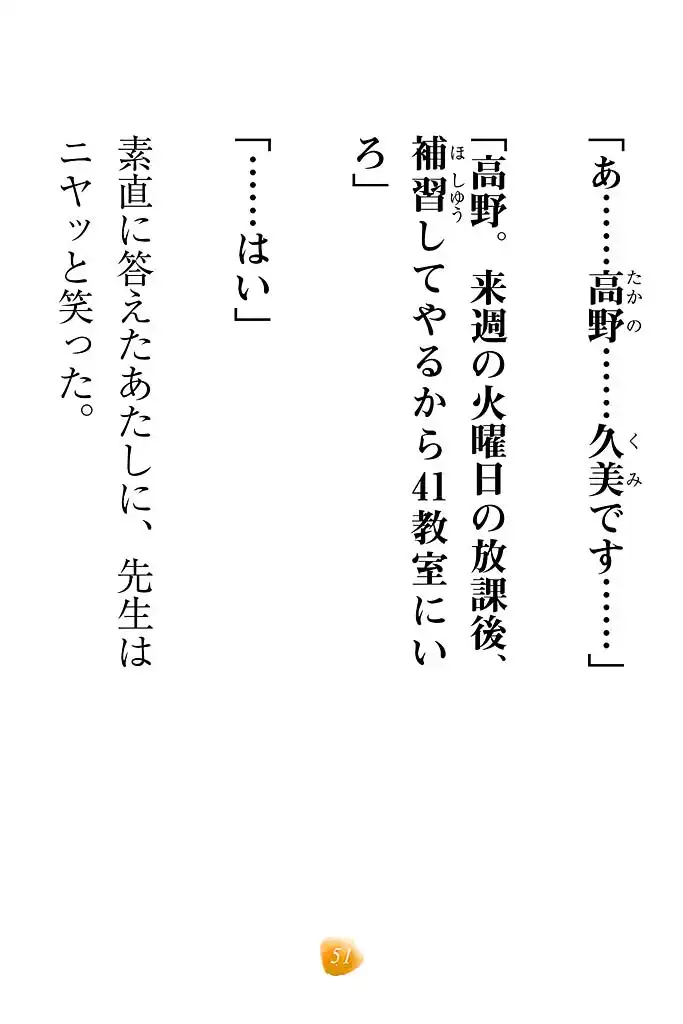 「あ……高野……久美です……」
「高野。来週の火曜日の放課後、
補習してやるから41教室にい
ろ」
「……はい」
素直に答えたあたしに、先生は
ニヤッと笑った。
たかの
くみ
ほしゆう
51